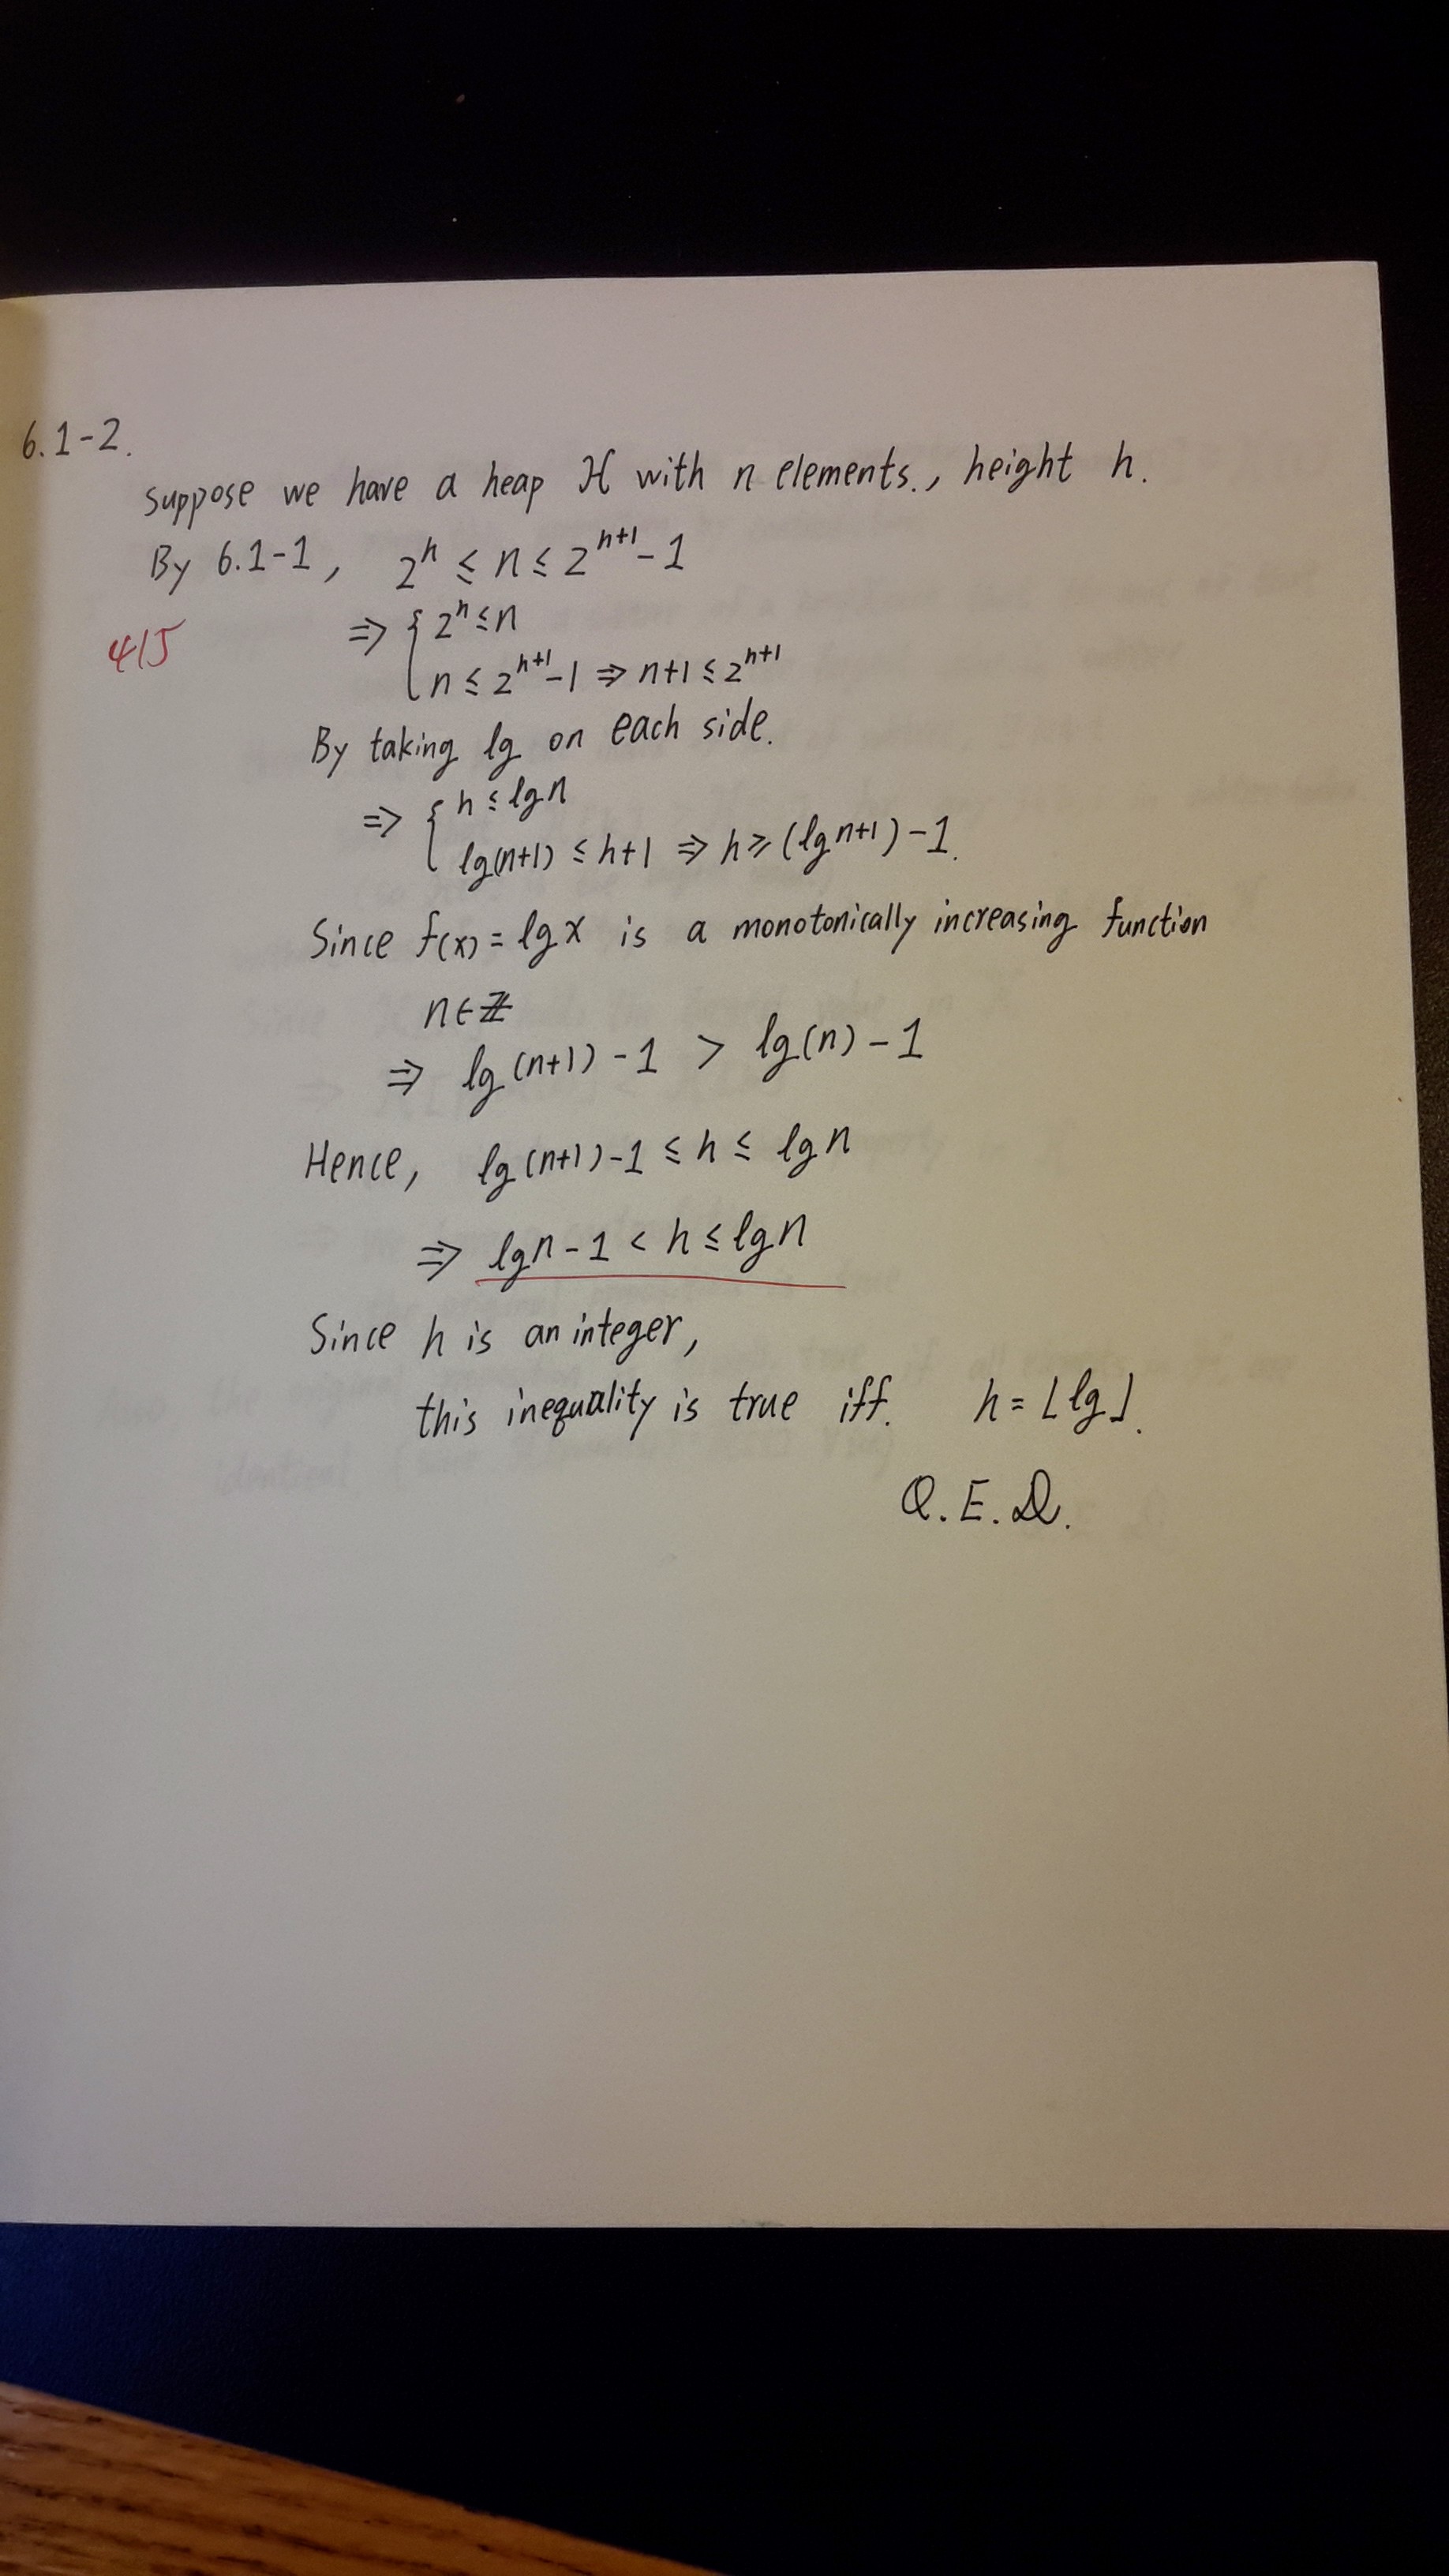 6.1-2.
Suppose we have a heap H with n elements., height h.
By 6.1-1, 2^h ≤ n ≤ 2^{h+1} - 1
4/5
⇒ { 2^h ≤ n
n ≤ 2^{h+1} - 1 ⇒ n+1 ≤ 2^{h+1}
By taking lg on each side.
⇒ { h ≤ lg n
lg(n+1) ≤ h+1 ⇒ h ≥ (lg n+1) - 1.
Since f(x) = lg x is a monotonically increasing function
n ∈ ℤ
⇒ lg(n+1) - 1 > lg(n) - 1
Hence, lg(n+1) - 1 ≤ h ≤ lg n
⇒ lg n - 1 < h ≤ lg n
Since h is an integer,
this inequality is true iff. h = ⌊lg⌋.
Q.E.D.